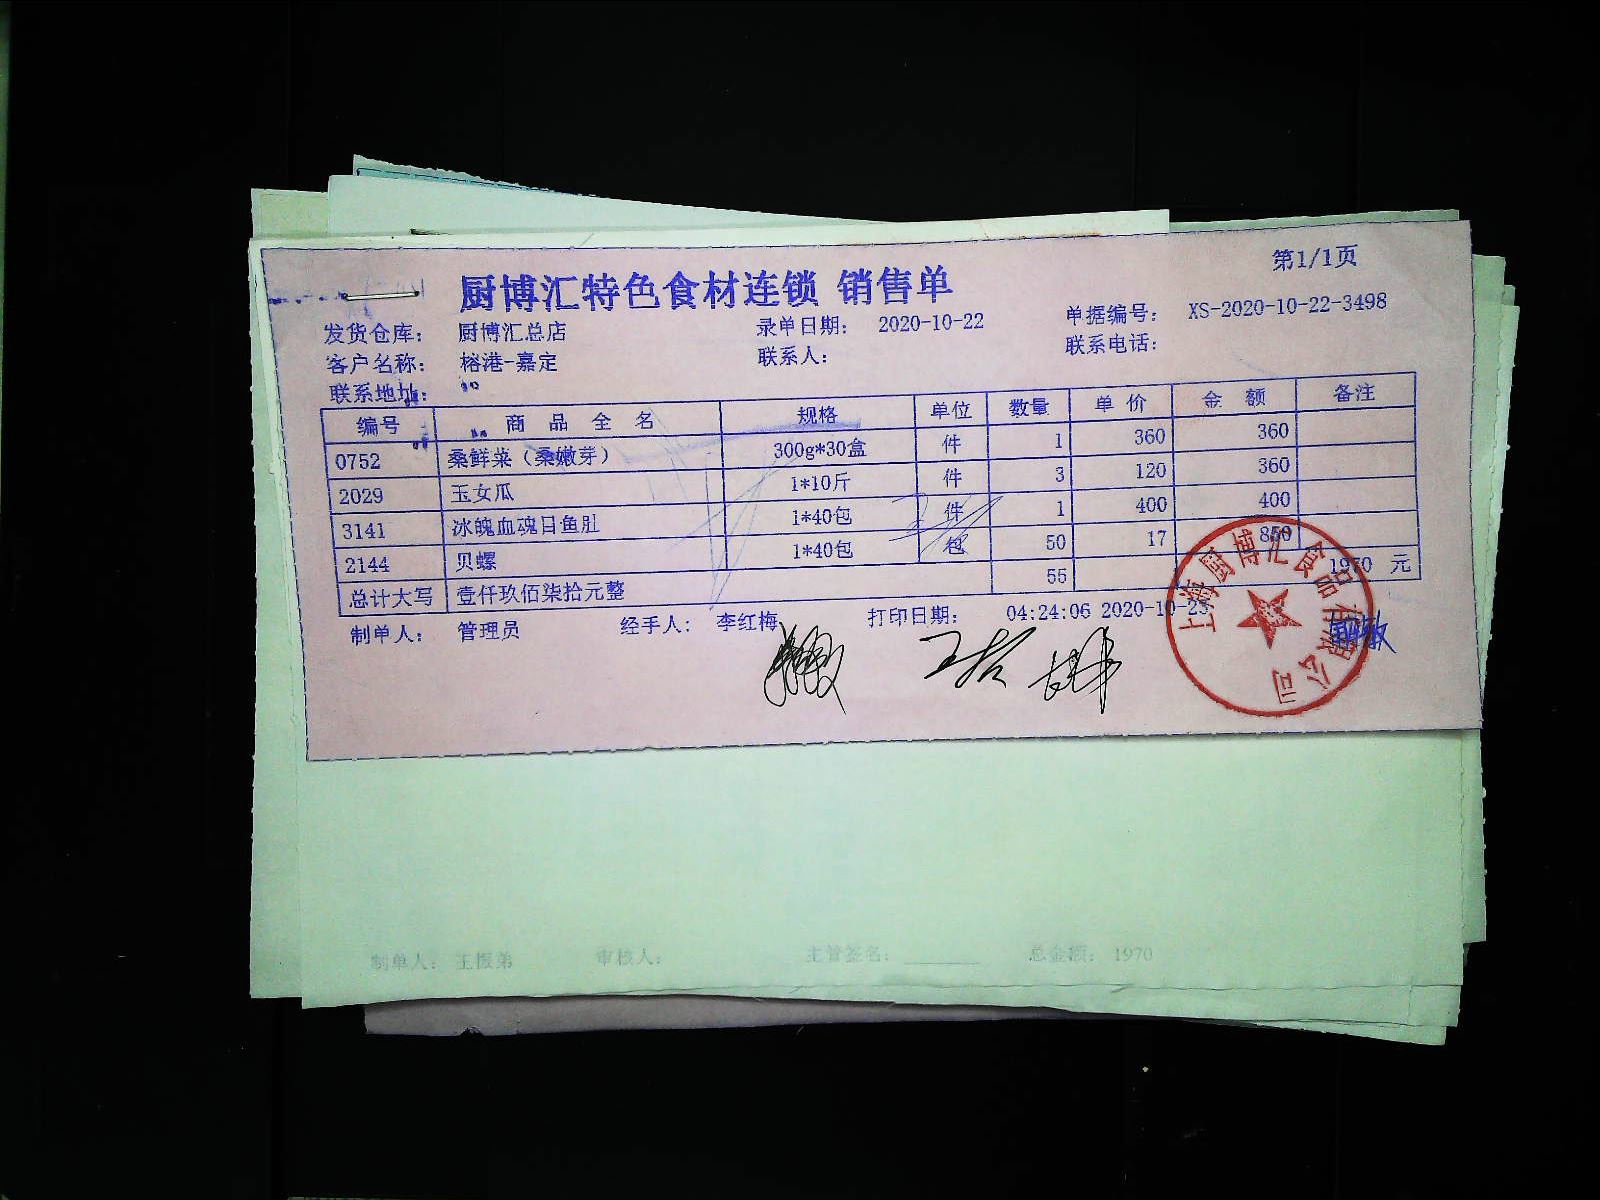 第1/1页
厨博汇特色食材连锁 销售单
发货仓库： 厨博汇总店 录单日期： 2020-10-22 单据编号： XS-2020-10-22-3498
客户名称： 榕港-嘉定 联系人： 联系电话：
联系地址：
编号 商品全名 规格 单位 数量 单价 金额 备注
0752 桑鲜菜（桑嫩芽） 300g*30盒 件 1 360 360
2029 玉女瓜 1*10斤 件 3 120 360
3141 冰魄血魂目鱼肚 1*40包 件 1 400 400
2144 贝螺 1*40包 包 50 17 850
总计大写 壹仟玖佰柒拾元整 55 1970 元
制单人： 管理员 经手人： 李红梅 打印日期： 04:24:06 2020-10-23
上海厨博汇食品有限公司
制单人： 王振弟 审核人： 主管签名： 总金额： 1970